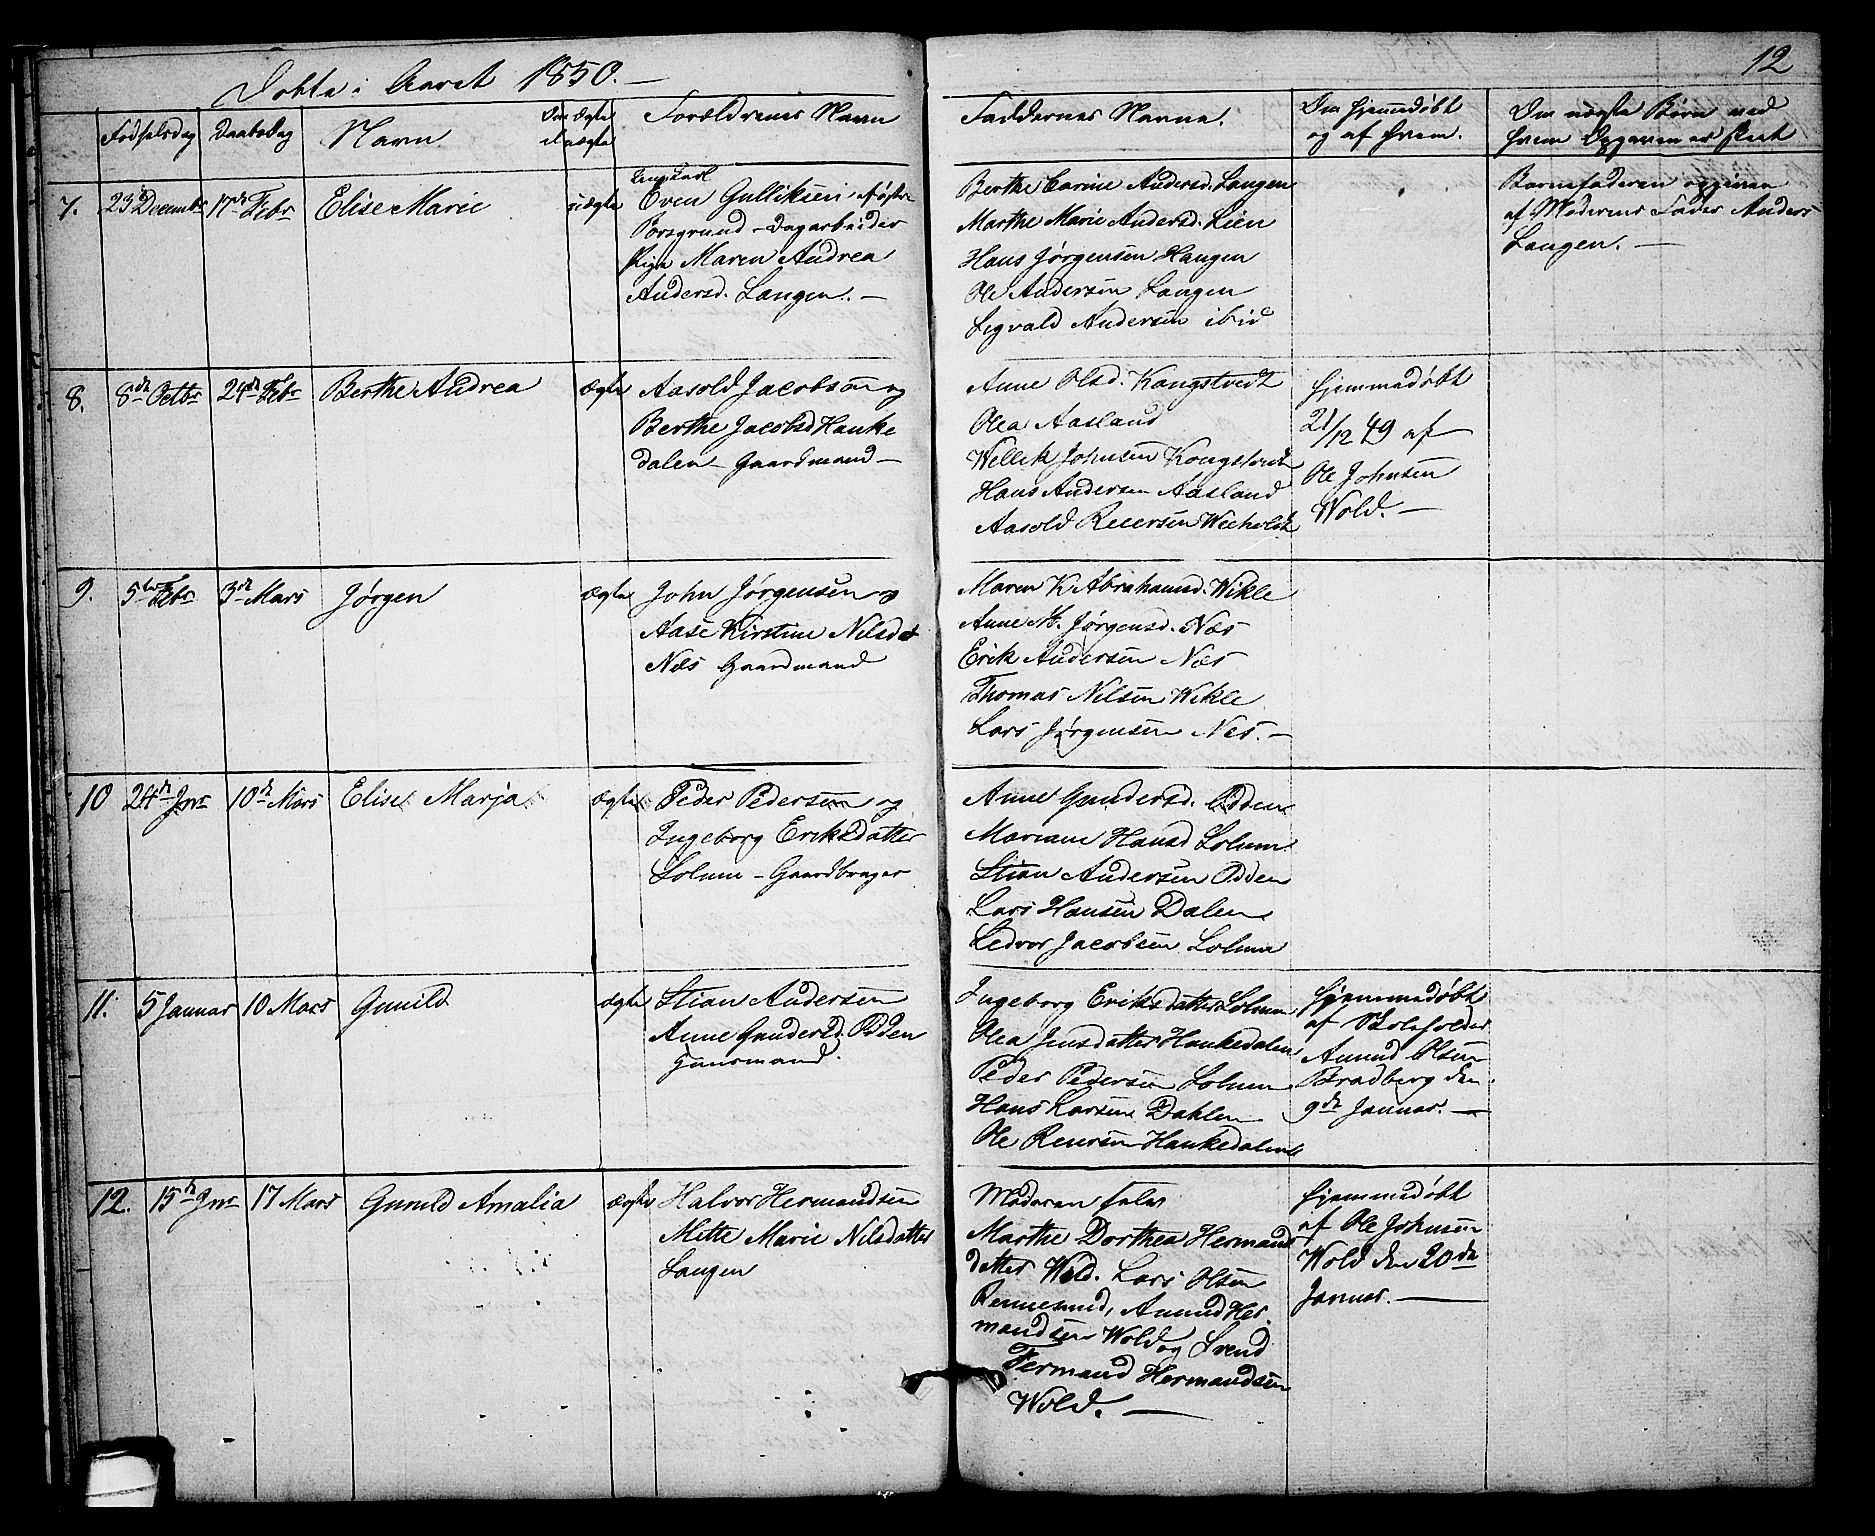 Døbte i Aaret 1850.
12
Fødselsdag
Daabsdag
Navn
Om ægte el uægte
Forældrenes Navn
Faddernes Navne.
Om hjemmedøbt
og af hvem.
Om uægte Børn ved
hvem Opgaven er skeet
7.
23 Decembr
17de Febr
Elise Marie
uægte
Ungkarl
Even Gulliksen
Porsgrund - Dagarbeider
Pige Maren Andrea
Andersd. Langen. -
Berthe Carine Andersd. Langen
Marthe Marie Andersd. Lien
Hans Jørgensen Haugen
Ole Andersen Langen
Sigvald Andersen ibid
Barnefaderen opgiven
af Moderens Fader Anders
Langen. -
8.
8de Octbr
24de Febr
Berthe Andrea
ægte
Aasold Jacobsen og
Berthe Jacobsd Hauke
dalen - Gaardmand -
Anne Olsd. Kongstvedt
Olea Aasland
Wellek Johnsen Kongstvedt
Hans Andersen Aasland
Aasold Reiersen Weholdt
hjemmedøbt
21/12 49 af
Ole Johnsen
Wold. -
9.
5te Febr
3de Mars
Jørgen
ægte
John Jørgensen og
Aase Kirstine Nilsdat
Næs Gaardmand
Maren K. Abrahamsd. Wikle
Anne M. Jørgensd. Næs
Erik Andersen Næs
Thomas Nilsen Wikle
Lars Jørgensen Næs. -
10
24de Jnr
10de Mars
Elise Marja
ægte
Peder Pedersen og
Ingeborg Eriksdatter
Solum - Gaardbruger
Anne Gundersd. Odden
Mariane Hansd Solum
Stian Andersen Odden
Lars Hansen Dalen
Sedvor Jacobsen Solum
11.
5 Januar
10 Mars
Gunild
ægte
Stian Andersen
Anne Gundersd. Odden
Huusmand.
Ingeborg Eriksdatter Solum
Olea Jensdatter Haukedalen
Peder Pedersen Solum
Hans Larsen Dahlen
Ole Reiersen Haukedalen
hjemmedøbt
af Skoleholder
Amund Olsen
Bradberg den
9de Januar. -
12.
15de Jnr
17 Mars
Gunild Amalia
ægte
Halvor Hermandsen
Mette Marie Nilsdatter
Langen
Moderen selv
Marthe Dorthea Hermands
datter Wold. Lars Olsen
Rennesund, Amund Her
mandsen Wold og Svend
Fermand Hermandsen
Wold. -
hjemmedøbt
af Ole Johnsen
Wold den 20de
Januar. -